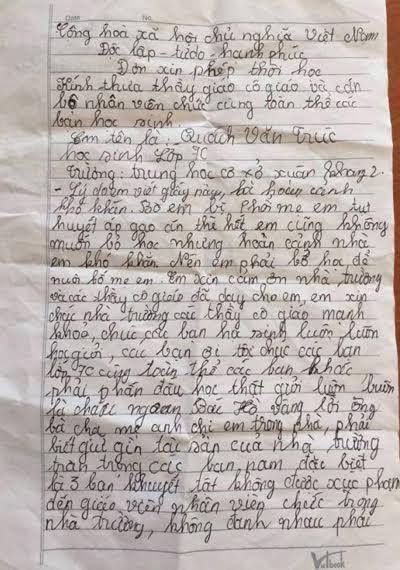 Date No.
Cộng hoà xã hội chủ nghĩa Việt Nam
Độc lập - tự do - hạnh phúc
Đơn xin phép thôi học
Kính thưa thầy giáo cô giáo và cán
bộ nhân viên chức cùng toàn thể các
bạn học sinh
Em tên là: Quách Văn Trúc
học sinh Lớp 7C
Trường: trung học cơ sở xuân phang 2.
- Lý do em viết giấy này, hà hoàn cảnh
khó khăn. Bố em bị Phổi mẹ em tụt
huyết áp gạo ăn thì hết em cũng không
muốn bỏ học nhưng hoàn cảnh nhà
em khó khăn. Nên em phải bỏ học để
nuôi bố mẹ em. Em xin cảm ơn nhà trường
và các thầy cô giáo đã dạy cho em, em xin
chúc nhà trường các thầy cô giáo mạnh
khoẻ, chúc các bạn học sinh luôn luôn
học giỏi, các bạn ơi tôi chúc các bạn
lớp 7C cùng toàn thể các bạn khác
phải phấn đấu học thật giỏi luôn luôn
là cháu ngoan Bác Hồ vâng lời ông
bà cha mẹ anh chị em trong nhà, phải
biết giữ gìn tài sản của nhà trường
trân trọng các bạn, nam đặc biệt
là 3 bạn khuyết tật không được xúc phạm
đến giáo viên nhân viên chức trong
nhà trường, không đánh nhau phải
Vietbook